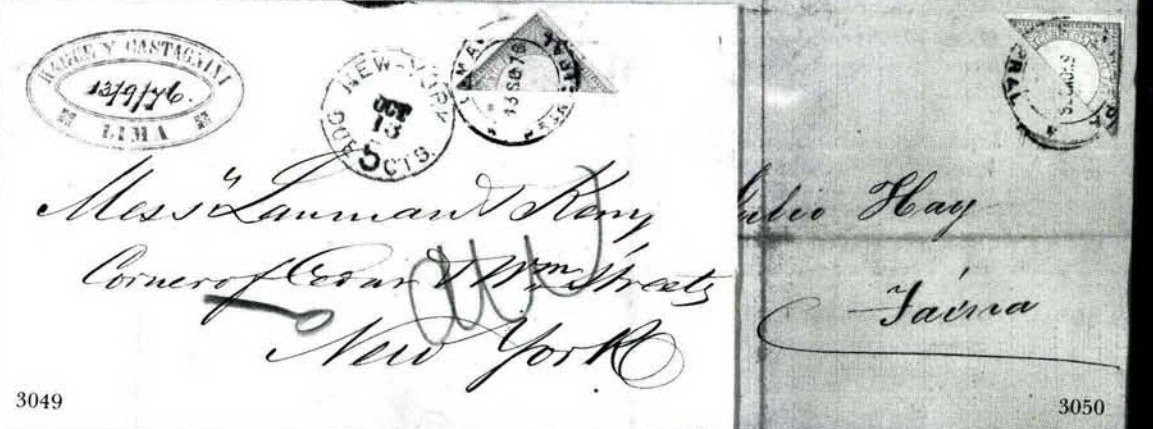 Y CASTAGNINI
13/9/76.
LIMA
NEW-YORK
OCT
13
DUE 5 CTS.
LIMA
13 SE 76
Mess" Lanman & Kemp
Corner of Cedar & Wm Streets
New York
3049
PRAL
Julio Hay
Tacna
3050